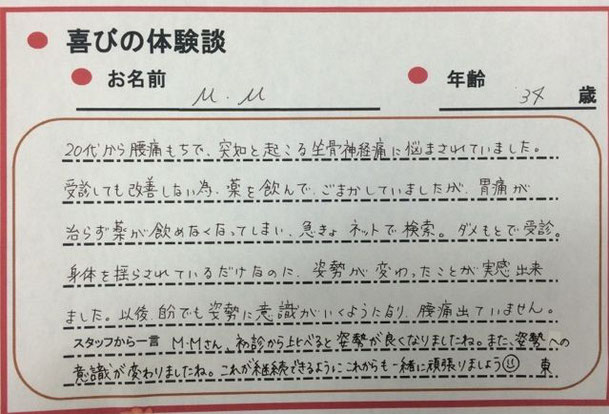 喜びの体験談
お名前 M.M 年齢 34 歳
20代から腰痛もちで、突如と起こる坐骨神経痛に悩まされていました。
受診しても改善しない為、薬を飲んで、ごまかしていましたが、胃痛が
治らず薬が飲めなくなってしまい、急きょネットで検索。ダメもとで受診。
身体を揺らされているだけなのに、姿勢が変わったことが実感出来
ました。以後自分でも姿勢に意識がいくようになり、腰痛出ていません。
スタッフから一言 M.Mさん、初診から比べると姿勢が良くなりましたね。また、姿勢への
意識が変わりましたね。これが継続できるようにこれからも一緒に頑張りましょう 東